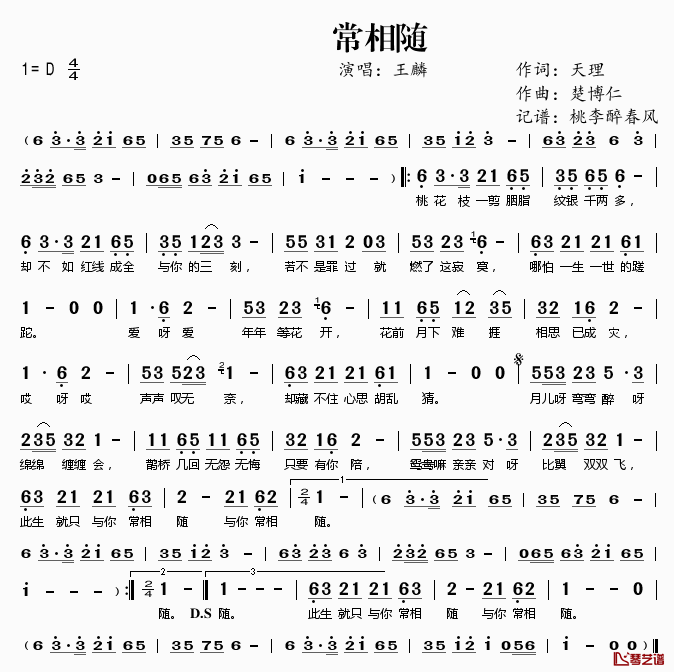 常相随
1= D 4/4 演唱：王麟 作词：天理
作曲：楚博仁
记谱：桃李醉春风
( 6 3·3 2i 65 | 35 75 6 - | 6 3·3 2i 65 | 35 i2 3 - | 63 23 6 3 |
232 65 3 - | 065 63 2i 65 | i - - ) ‖: 6 3·3 21 65 | 35 65 6 - |
桃 花 枝 一剪 胭脂 纹银 千两 多，
6 3·3 21 65 | 35 123 3 - | 55 31 2 03 | 53 23 1 6 - | 63 21 21 61 |
却 不 如 红线 成全 与你 的三 刻， 若不 是罪 过 就 燃了 这寂 寞， 哪怕 一生 一世 的蹉
1 - 0 0 | 1 ·6 2 - | 53 23 1 6 - | 11 65 12 35 | 32 16 2 - |
跎。 爱 呀 爱 年年 等花 开， 花前 月下 难 捱 相思 已成 灾，
1 ·6 2 - | 53 523 2 1 - | 63 21 21 61 | 1 - 0 0 | 5 553 223 5 ·3 |
哎 呀 哎 声声 叹无 亲， 却藏 不住 心思 胡乱 猜。 月儿呀 弯弯 醉 呀
235 32 1 - | 11 65 21 65 | 32 16 2 - | 553 223 5 ·3 | 235 32 1 - |
绵绵 缠缠 会， 鹊桥 几回 无怨 无悔 只要 有你 陪， 鸳鸯嘛 亲亲 对 呀 比翼 双双 飞，
63 21 21 63 | 2 - 21 62 | 1 2/4 1 - | ( 6 3·3 2i 65 | 35 75 6 - |
此生 就只 与你 常相 随 与你 常相 随。
6 3·3 2i 65 | 35 i2 3 - | 63 23 6 3 | 232 65 3 - | 065 63 2i 65 |
i - - ) :‖ 2 2/4 1 - ‖ 3 1 - - - | 63 21 21 63 | 2 - 21 62 | 1 - - 0 |
随。 D.S 随。 此生 就只 与你 常相 随 与你 常相 随。
( 6 3·3 2i 65 | 35 i2 3 - | 63 23 2i 65 | 35 i2 i 056 | i - - 0 ) ‖
琴艺谱